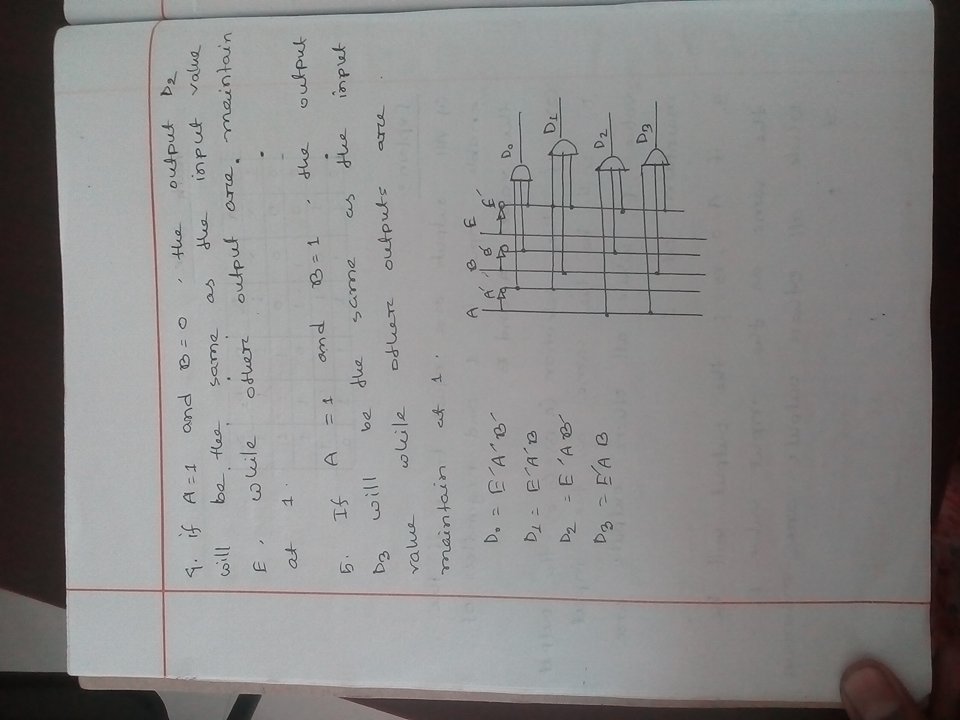 4. if A=1 and B=0, the output D2
will be the same as the input value
E, while other output are maintain
at 1.
5. If A =1 and B=1, the output
D3 will be the same as the input
value while other outputs are
maintain at 1.
D0 = E'A'B'
D1 = E'A'B
D2 = E'AB'
D3 = E'AB
A B E
A' B' E'
D0
D1
D2
D3